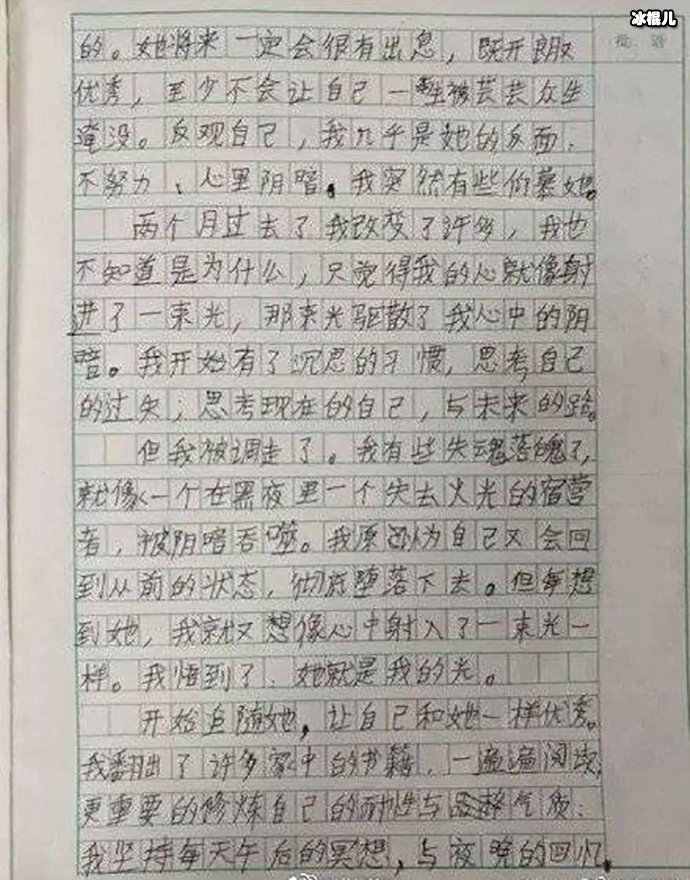 冰棍儿
批 语
的。她将来一定会很有出息，既开朗又
优秀，至少不会让自己一生被芸芸众生
淹没。反观自己，我几乎是她的反面：
不努力、心里阴暗。我突然有些仰慕她。
两个月过去了我改变了许多，我也
不知道是为什么，只觉得我的心就像射
进了一束光，那束光驱散了我心中的阴
暗。我开始有了沉思的习惯，思考自己
的过失；思考现在的自己，与未来的路。
但我被调走了。我有些失魂落魄了，
就像一个在黑夜里一个失去火光的宿营
者，被阴暗吞噬。我原以为自己又会回
到从前的状态，彻底堕落下去。但每想
到她，我就又想像心中射入了一束光一
样。我悟到了：她就是我的光。
开始追随她，让自己和她一样优秀。
我翻出了许多家中的书籍，一遍遍阅读，
更重要的修炼自己的耐性与品静气质：
我坚持每天午后的冥想，与夜晚的回忆，